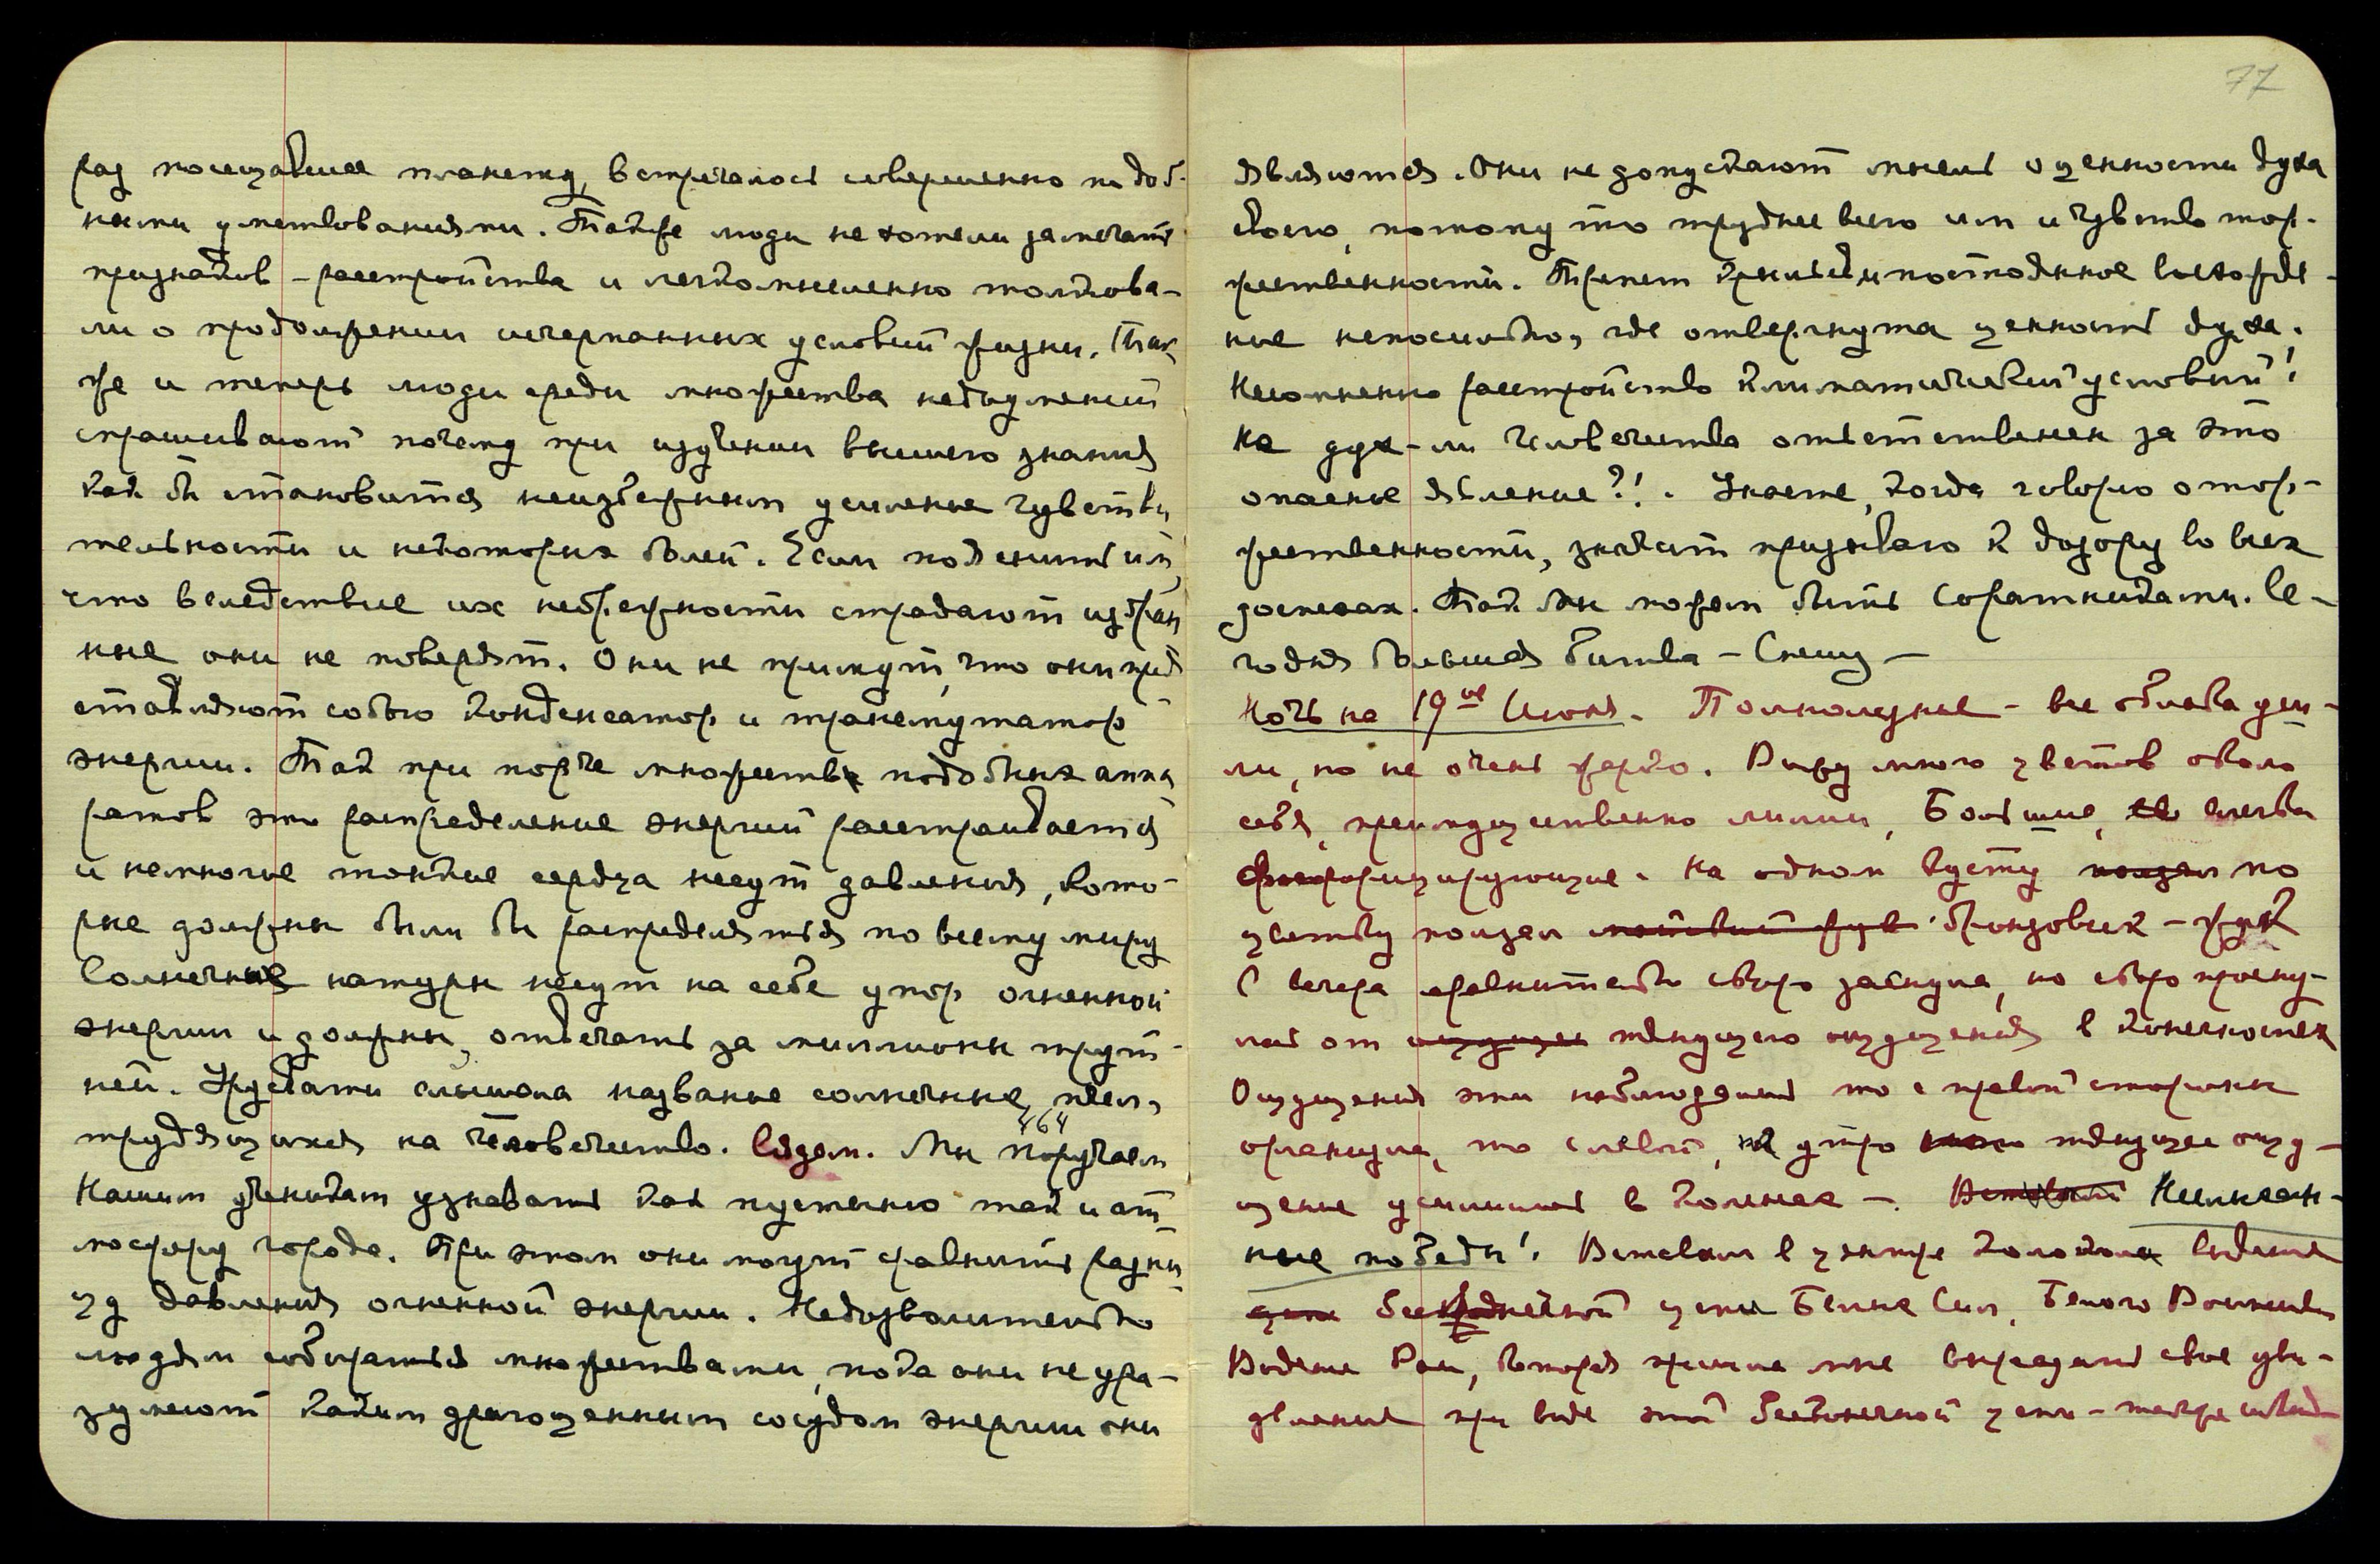 раз посещавшее планету, встречалось совершенно подоб-
ными умствованиями. Также люди не хотели замечать
признаков - расстройства и легкомысленно толкова-
ли о продолжении исчерпанных условий жизни. Так
же и теперь люди среди множества недоумений
спрашивают почему при изучении высшего знания
как бы становится неизбежным усиление чувстви
тельности и некоторых болей. Если пояснить им,
что вследствие их небрежности страдают избран
ные они не поверят. Они не примут, что они пред
ставляют собою конденсатор и трансмутатор
энергии. Так при порче множества подобных аппа
ратов это распределение энергий расстраивается
и немногие тонкие сердца несут давления, кото-
рые должны были бы распределяться по всему миру
Солнечные натуры несут на себе упор огненной
энергии и должны отвечать за миллионы трут-
ней. Урусвати слышала название солнечные пчел,
трудящихся на человечество. 464
Сядем. Мы поручаем
Нашим ученикам узнавать как пустыню так и ат-
мосферу города. При этом они могут сравнить разни
цу давления огненной энергии. Недозволительно
людям собираться множествами, пока они не ура-
зумеют каким драгоценным сосудом энергии они
77
являются. Они не допускают мысль о ценности духа
своего, потому что труднее всего им и чувство тор-
жественности. Трепет крыльев и постоянное восхожде-
ние непосильно, где отвергнута ценность духа.
Несомненно расстройство климатический условий!
Не дух-ли человечества ответственен за это
опасное явление?!. Знаете, когда говорю о тор-
жественности, значит призываю к дозору во всех
доспехах. Так Мы можем быть Соратниками. Се-
годня большая битва - Спешу -
Ночь на 19ое Июня. Полнолуние - все облака
но не очень жарко. Вижу много цветов около
себя, преимущественно лилии, Большие, слегка
фосфоризирующие. На одном кусту по
цветку ползал бронзовик - жук
С вечера сравнительно скоро заснула, но скоро просну-
лась от тянущего ощущения в конечностях
Ощущения эти наблюдались то с правой стороны
организма, то с левой, на утро тянущее ощу-
щение усилилось в коленях -. Неисканн-
ные победы!. Витевам в центре видения
цепи Белых Сил, Белого Воинства
мне выразить свое уди-
вление при виде этой бесконечной цепи -